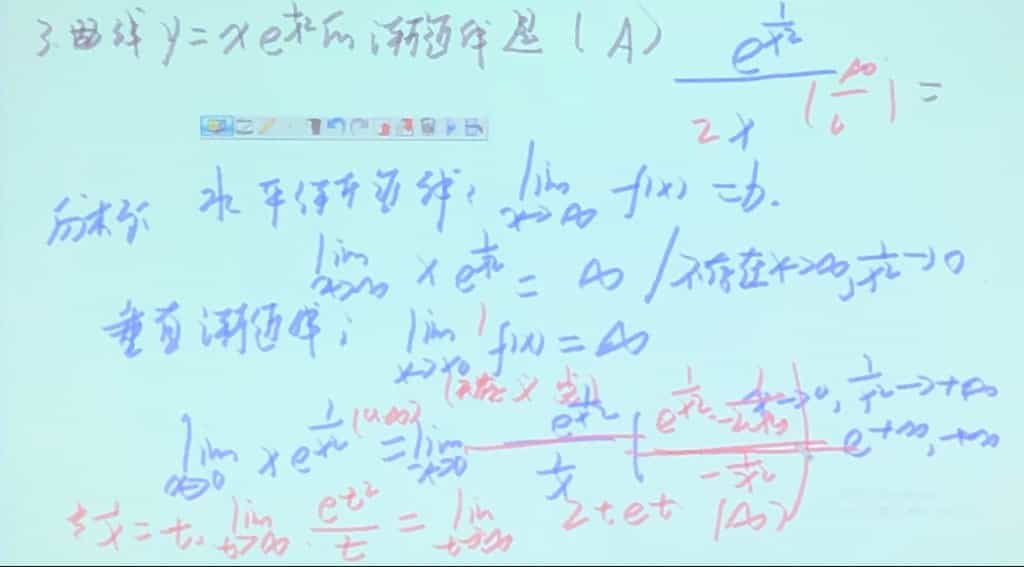 3.曲线 y = x e^{1/x²} 的渐近线是 ( A )
e^{1/x²} / 2x ( ∞/ ) =
水平渐近线: lim_{x→∞} f(x) = b.
lim_{x→∞} x e^{1/x²} = ∞ / 不存在 x→∞, 1/x² → 0
垂直渐近线: lim_{x→x₀} f(x) = ∞
lim_{x→0} x e^{1/x²} (0·∞) = lim_{x→0} e^{1/x²} / (1/x) ( e^{1/x²} · / -1/x² ) x→0, 1/x² → +∞
e^{+∞}, +∞
1/x = t. lim_{t→∞} e^{t²} / t = lim_{t→∞} 2tet (∞)